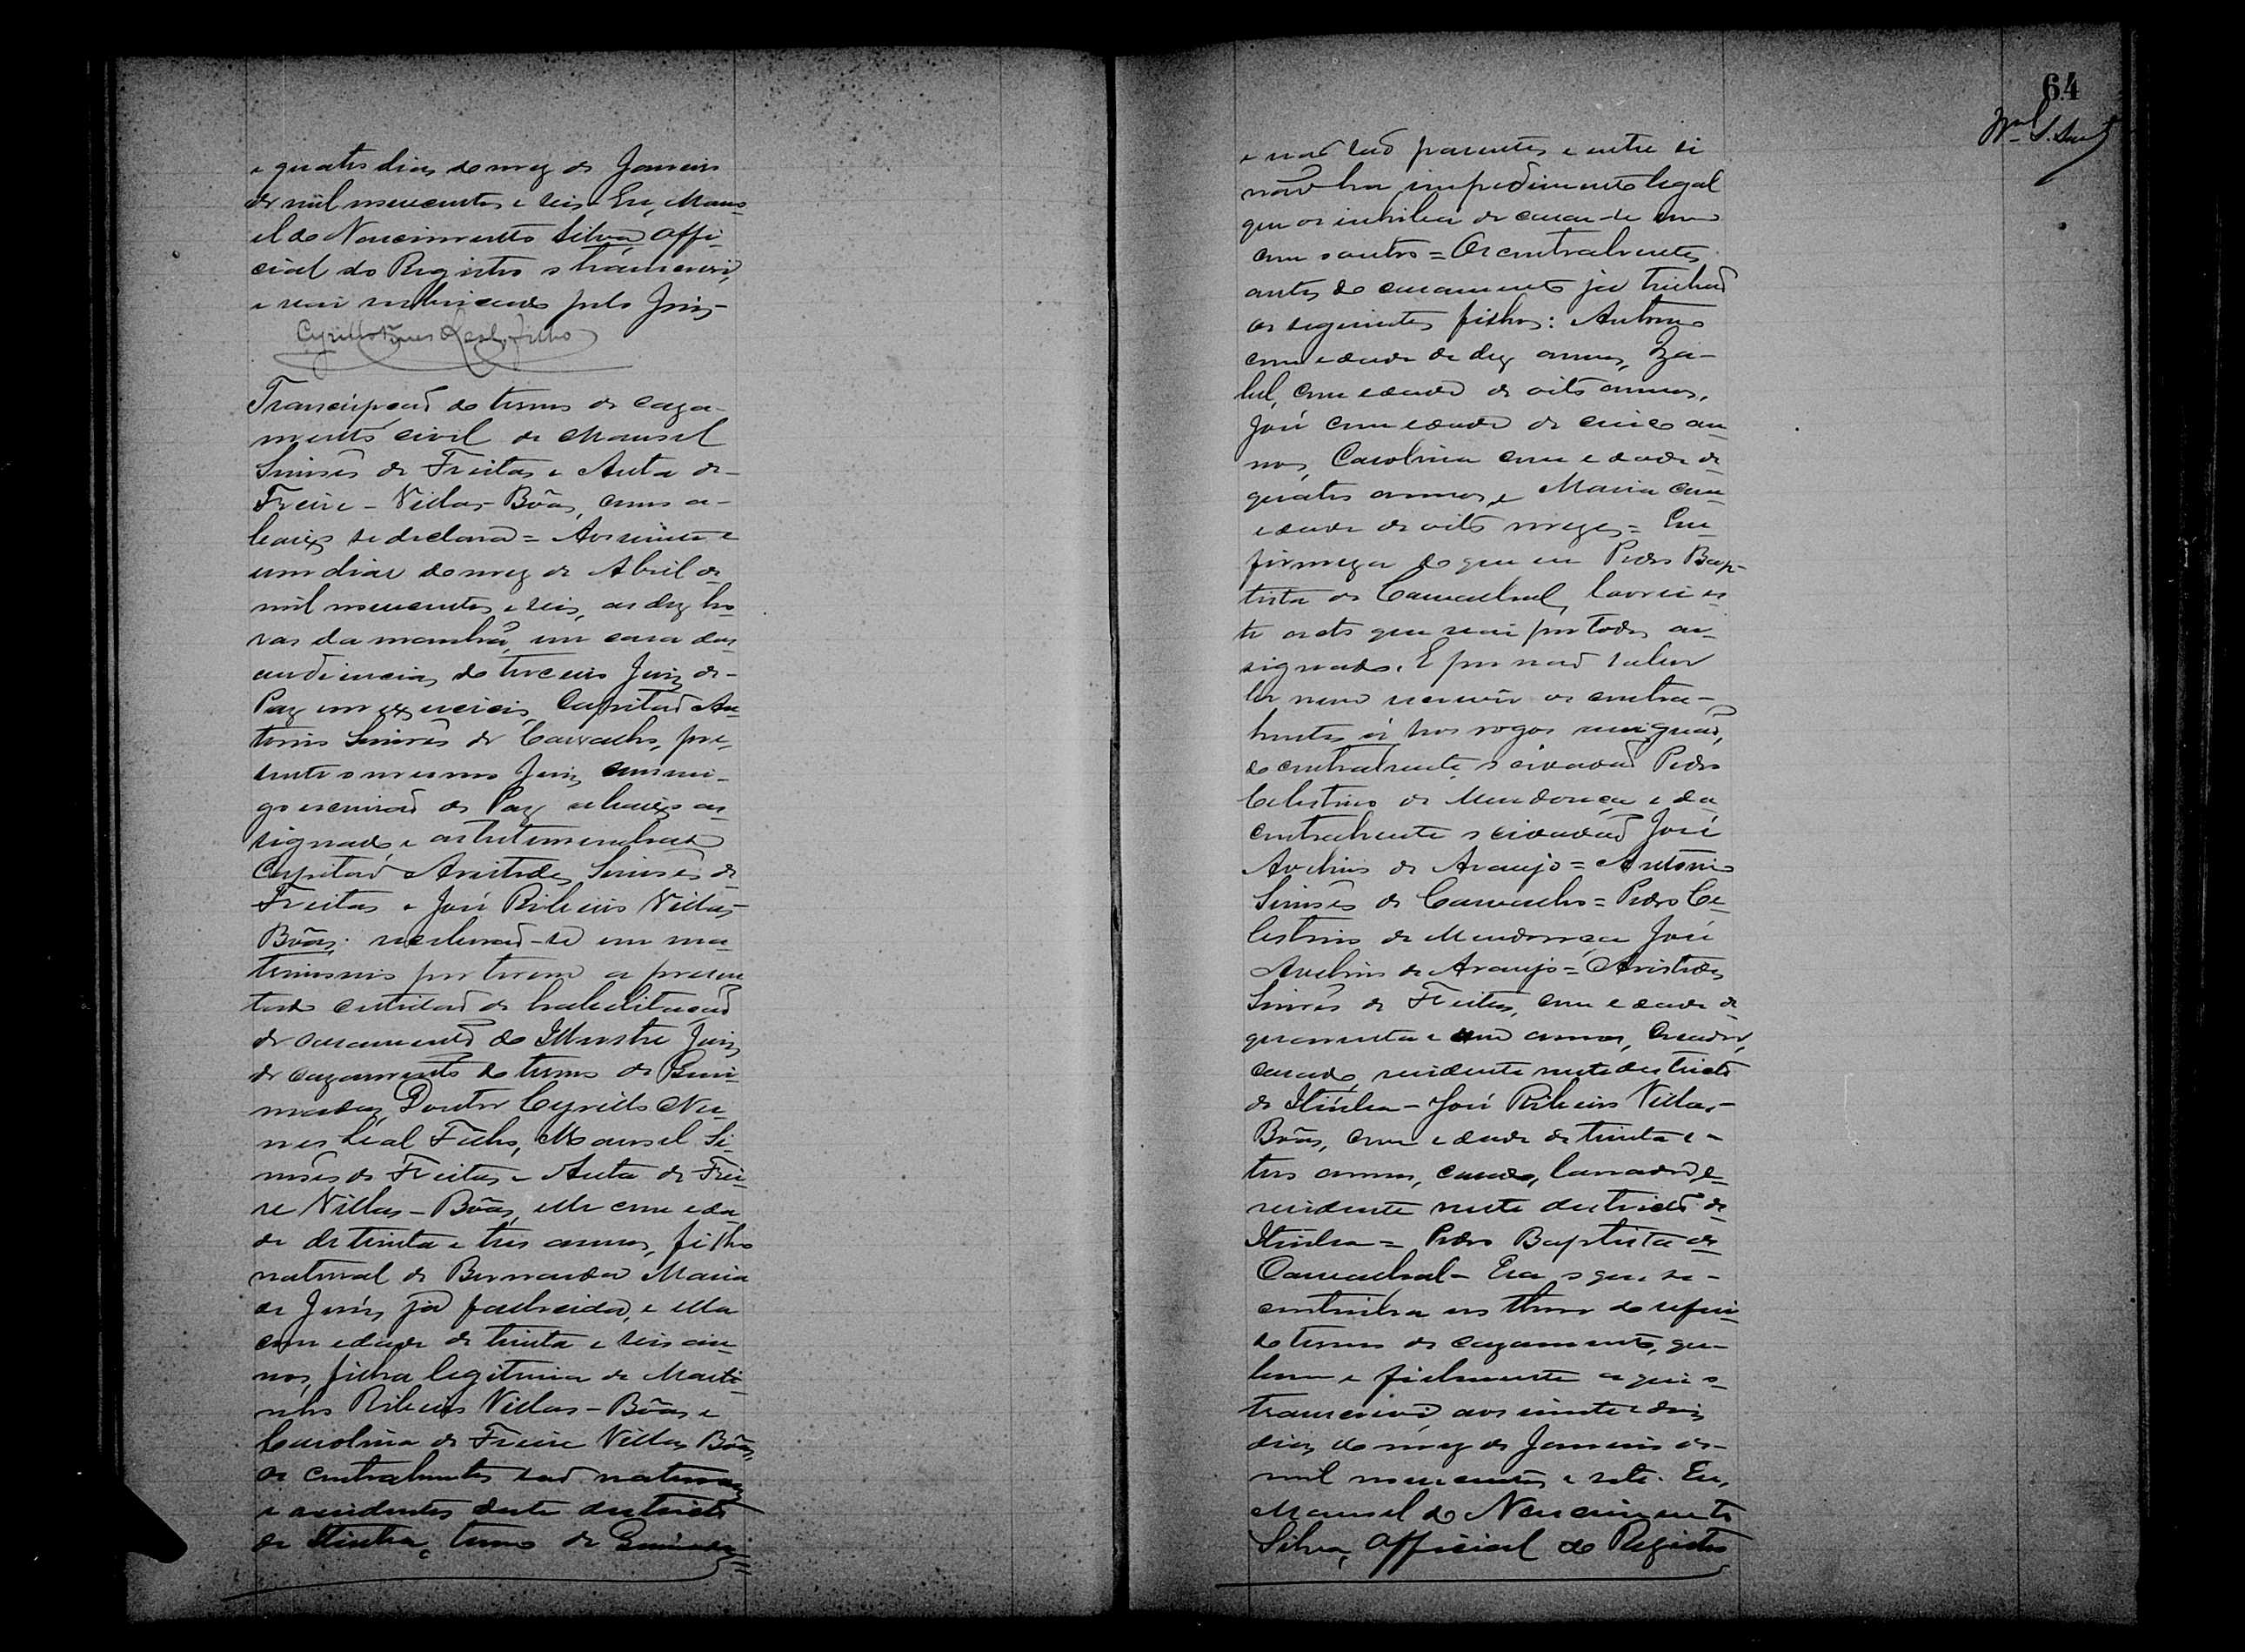 e quatro dias do mez de Janeiro
de mil novecentos e seis. Eu, Mano-
el do Nascimento Silva, Offi-
cial do Registro o transcrevi,
e vai rubricado pelo Juiz-
Cyrillo Nunes Leal Filho
Transcripção do termo de caza-
mento civil de Manoel
Simões de Freitas e Auta de-
Freire-Villas-Bôas, como a-
baixo se declara = Aos vinte e
um dias do mez de Abril de
mil novecentos e seis, as dez ho
ras da manhã, em casa das
audiencias do terceiro Juiz de-
Paz em exercicio, Capitão An
tonio Simões de Carvalho, pre,
sente o mesmo Juiz, commi-
go escrivão de Paz abaixo as
signado e as testemunhas
Capitão Aristides Simões de
Freitas e José Ribeiro Villas-
Bôas; receberão-se em ma
trimonio por terem apresen
tado certidão de habilitação
de casamento do Illustre Juiz
de cazamento do termo de Quei-
madas, Doutor Cyrillo Nu-
nes Leal Filho, Manoel Si-
mões de Freitas e Auta de Frei-
re Villas-Bôas, elle com eda-
de de trinta e tres annos, filho
natural de Bernarda Maria
de Jesus, já fallecida, e ella
com edade de trinta e seis an-
nos, filha legitima de Marti-
nho Ribeiro Villas-Bôas e
Carolina de Freire Villas Bôas,
os contrahentes são naturaes
e residentes deste districto
de Itiuba, termo de Queimadas=
64
e não são parentes e entre si
não ha impedimento legal
que os inhiba de casar-se um
com o outro = Os contrahentes
antes do casamento já tinhão
os seguintes filhos: Antonio
com edade de dez annos, Iza-
bel, com edade de oito annos,
José com edade de cinco an
nos, Carolina com edade de
quatro annos, e Maria com
edade de oito mezes = Em
firmeza do que eu Pedro Bap-
tista de Carvalhal, lavrei es
te acto que vai por todos as-
signado. E por não saber
ler nem escrever os contra-
hentes á seus rogos assignão,
do contrahente o cidadão Pedro
Celestino de Mendonça e da
contrahente o cidadão José
Avelino de Araujo = Antonio
Simões de Carvalho = Pedro Ce-
lestino de Mendonça José
Avelino de Araujo = Aristides
Simões de Freitas, com edade de
quarenta e um annos, creador,
casado, residente neste districto
de Itiuba - José Ribeiro Villas-
Bôas, com edade de trinta e-
tres annos, casado, lavrador, e
residente neste districto de
Itiuba = Pedro Baptista de
Carvalhal - Era o que se-
continha no livro do referi-
do termo de cazamento, que
bem e fielmente aqui o
transcrevi aos vinte e dois
dias do mez de Janeiro de-
mil novecentos e sete. Eu,
Manoel do Nascimento
Silva, Official do Registro